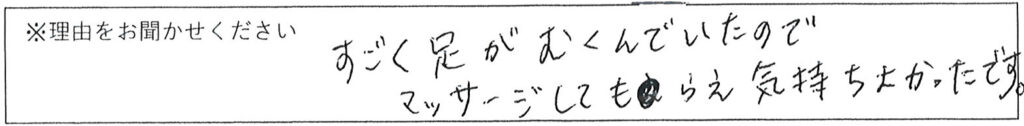 ※理由をお聞かせください
すごく足がむくんでいたので
マッサージしてもらえ気持ちよかったです。